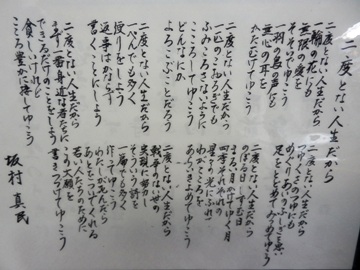 二度とない人生だから
二度とない人生だから
一輪の花にも
無限の愛を
そそいでゆこう
一羽の鳥の声にも
無心の耳を
かたむけてゆこう
二度とない人生だから
一匹のこおろぎでも
ふみころさないように
こころしてゆこう
どんなにか
よろこぶことだろう
二度とない人生だから
一ぺんでも多く
便りをしよう
返事はかならず
書くことにしよう
二度とない人生だから
まず一番身近な者たちに
できるだけのことをしよう
貧しいけれど
こころ豊かに接してゆこう
二度とない人生だから
つゆくさのつゆにも
めぐりあいのふしぎを思い
足をとどめてみつめてゆこう
二度とない人生だから
のぼる日しずむ日
まるい月かけてゆく月
四季それぞれの
星々の光にふれて
わがこころを
あらいきよめてゆこう
二度とない人生だから
戦争のない世の
実現に努力し
そういう詩を
一篇でも多く
作ってゆこう
わたしが死んだら
あとをついでくれる
若い人たちのために
この大願を
書きつづけてゆこう
坂村真民